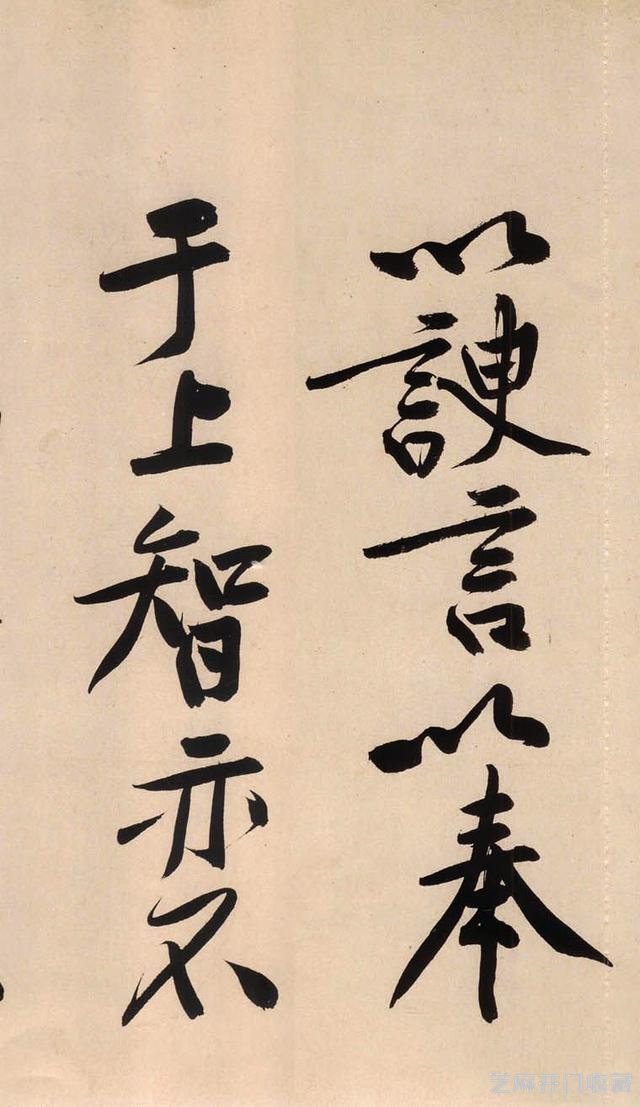 以謏言以奉
于上智亦不
芝麻开门收藏